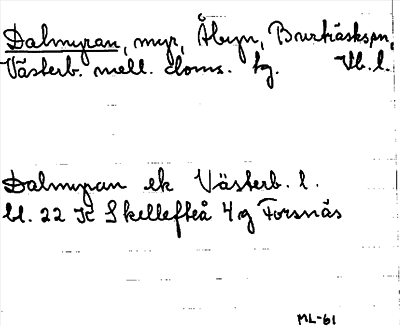 Dalmyran, myr, Åbyn, Burträsks sn,
Västerb. mell. doms. hg. Vb. l.
Dalmyran ek Västerb. l.
bl. 22 K Skellefteå 4 g Forsnäs
ML-61